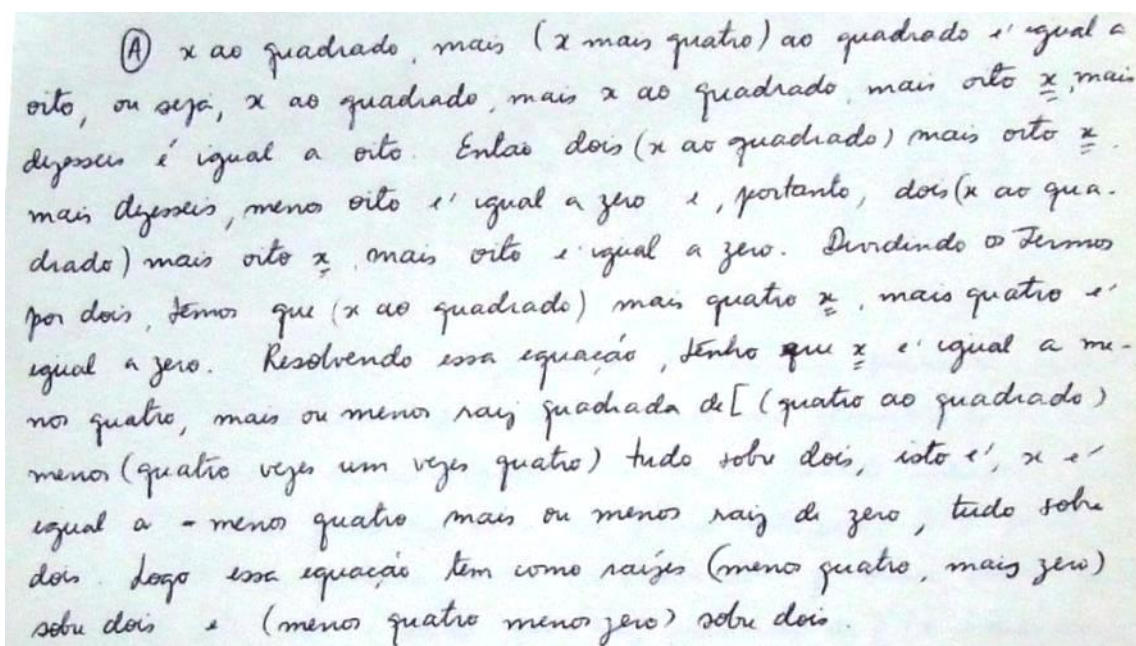 Ⓐ x ao quadrado, mais (x mais quatro) ao quadrado é igual a
oito, ou seja, x ao quadrado, mais x ao quadrado mais oito x, mais
dezesseis é igual a oito. Então dois (x ao quadrado) mais oito x.
mais dezesseis, menos oito é igual a zero e, portanto, dois (x ao qua-
drado) mais oito x, mais oito é igual a zero. Dividindo os termos
por dois, temos que (x ao quadrado) mais quatro x, mais quatro é
igual a zero. Resolvendo essa equação, tenho que x é igual a me-
nos quatro, mais ou menos raiz quadrada de [(quatro ao quadrado)
menos (quatro vezes um vezes quatro) tudo sobre dois, isto é, x é
igual a - menos quatro mais ou menos raiz de zero, tudo sobre
dois. Logo essa equação tem como raízes (menos quatro, mais zero)
sobre dois e (menos quatro menos zero) sobre dois.